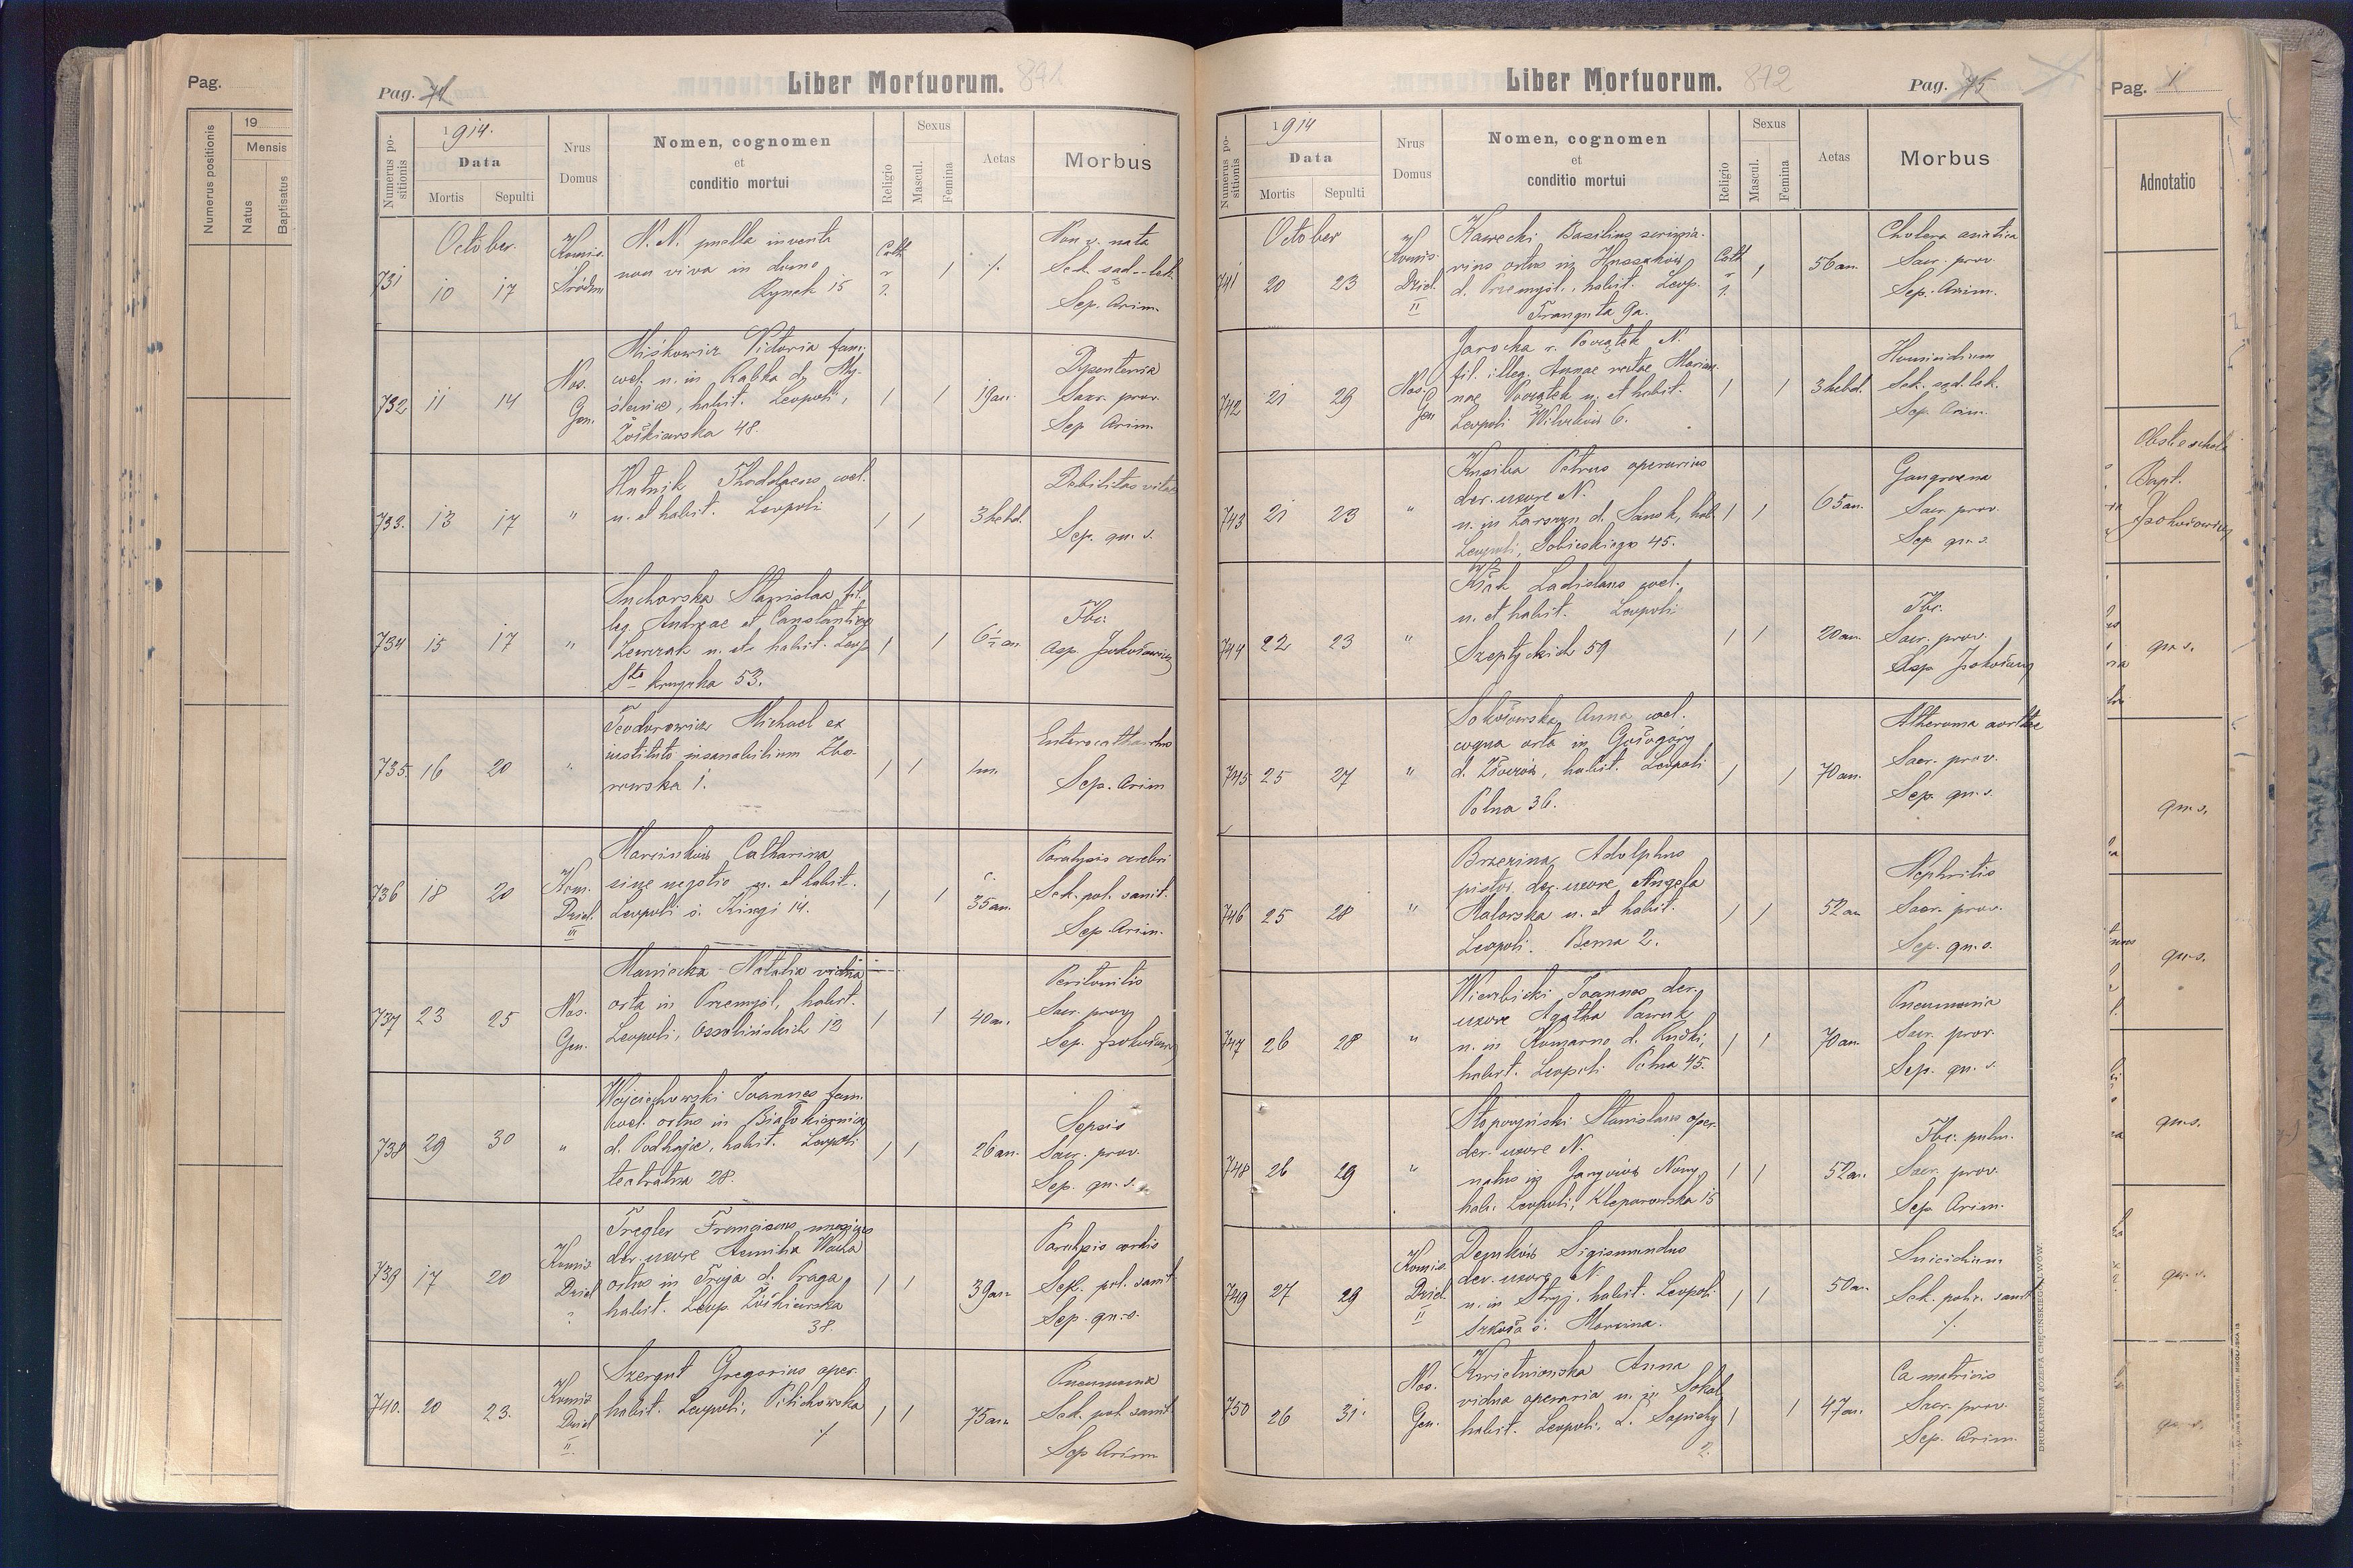 Pag.
Numerus positionis
19
Mensis
Natus
Baptisatus
Pag. 74
Liber Mortuorum. 871
Numerus positionis
1914.
Data
Mortis
Sepulti
Nrus Domus
Nomen, cognomen
et
conditio mortui
Religio
Sexus
Mascul.
Femina
Aetas
Morbus
October.
731 10 17
Komis. Śródm
N. N. puella inventa
non viva in domo
Rynek 15
Cath. r ?
1
Non v. nata
Sek. sąd.-lek.
Sep. Arim.
732 11 14
Nos. Gen.
Miśkowicz Victoria fam.
coel. n. in Rabka d. My-
ślenice, habit. Leopoli,
Żółkiewska 48.
1 1 19 an.
Dysenteria
Sacr. prov.
Sep. Arim.
733. 13 17 "
Hutnik Thaddaeus coel.
n. et habit. Leopoli
1 1 3 hebd.
Debilitas vitae
Sep. qu. s.
734 15 17 "
Sucharska Stanislaa fil.
leg. Andreae et Constantiae
n. et habit. Leop.
53.
1 1 6½ an.
Tbc.
735. 16 20 "
Teodorowicz Michael ex
instituto insanabilium Zbo-
rowska 1.
1 1 1 m.
Sep. Arim
736 18 20
Kom. Dziel. III
Marcinków Catharina
sine negotio n. et habit.
Leopoli ś. Kingi 14.
1 1 c. 35 an.
Paralysis cerebri
Sek. pol. sanit.
Sep. Arim.
737 23 25
Nos. Gen.
Natalia vidua
orta in Przemyśl, habit.
Leopoli, Ossolińskich 12
1 1 40 an.
Peritonitis
Sacr. prov.
738 29 30 "
Wojciechowski Joannes fam.
coel. ortus in Białokiernica
d. Podhajce, habit. Leopoli
teatralna 28.
1 1 26 an.
Sepsis
Sacr. prov.
Sep. qu. s.
739 17 20
Komis Dziel ?
Tregler Franciscus
der. uxore Aemilia
ortus in Troja d. Praga,
habit. Leop. Żółkiewska
38.
1 1 39 an.
Paralysis cordis
Sek. pol. sanit.
Sep. qu. s.
740. 20 23.
Komis Dziel II.
Szergut Gregorius oper.
habit. Leopoli, Pilichowska
1 1 75 an.
Pneumonia
Sek. pol. sanit
Sep Arim
Liber Mortuorum. 872
Pag. 75
Numerus positionis
1914
Data
Mortis
Sepulti
Nrus Domus
Nomen, cognomen
et
conditio mortui
Religio
Sexus
Mascul.
Femina
Aetas
Morbus
October
741 20 23
Komis. Dziel. II
Kawecki Basilius
ortus in Hussaków
d. Przemyśl., habit. Leop.
9a.
Cath r ?
1 56 an.
Cholera asiatica
Sacr. prov.
Sep. Arim.
742 21 29
Nos. Gen
Jarocka r. Początek N.
fil. illeg. Annae recte Marian-
nae Początek n. et habit.
Leopoli 6.
1 1 3 hebd.
Homicidium
Sek. sąd. lek.
Sep. Arim.
743 21 23 "
Petrus operarius
der. uxore N.
n. in Zarszyn d. Sanok, hab.
Leopoli, Sobieskiego 45.
1 1 65 an.
Gangraena
Sacr. prov.
Sep. qu. s.
744 22 23 "
Ladislaus coel.
n. et habit. Leopoli
Szeptyckich 59
1 1 20 an.
Tbc.
Sacr. prov.
745 25 27 "
Sokołowska Anna coel.
coqua orta in Gołogory
d. Złoczów, habit. Leopoli
Polna 36.
1 1 70 an.
Atheroma aortae
Sacr. prov.
Sep. qu. s.
746 25 28 "
Brzezina Adolphus
pistor, der. uxore Angela
Malarska n. et habit.
Leopoli. Bema 2.
1 1 52 an
Nephritis
Sacr. prov.
Sep. qu. s.
747 26 28 "
Wierzbicki Joannes der.
uxore Agatha
n. in Komarno d. Rudki,
habit. Leopoli Polna 45.
1 1 70 an.
Pneumonia
Sacr. prov.
Sep. qu. s.
748 26 29 "
Stanislaus oper.
der. uxore N.
natus in Nowy
hab. Leopoli, Kleparowska 15
1 1 52 an.
Tbc. pulm.
Sacr. prov.
Sep. Arim.
749 27 29
Komis. Dziel. II
Demków Sigismundus
der. uxore N.
n. in Stryj, habit. Leopoli
Szkoła ś. Marcina.
1 1 50 an.
Suicidium
Sek. polic. sanit
750 26 31.
Nos. Gen.
Kwietniowska Anna
vidua operaria n. in Sokal
habit. Leopoli, L. Sapiehy
2.
1 1 47 an.
Ca matricis
Sacr. prov.
Sep. Arim.
DRUKARNIA JÓZEFA CHĘCIŃSKIEGO LWÓW.
Pag. 1
Adnotatio
Bapt.
qu. s.
qu. s.
qu. s.
qu. s.
qu. s.
qu. s.